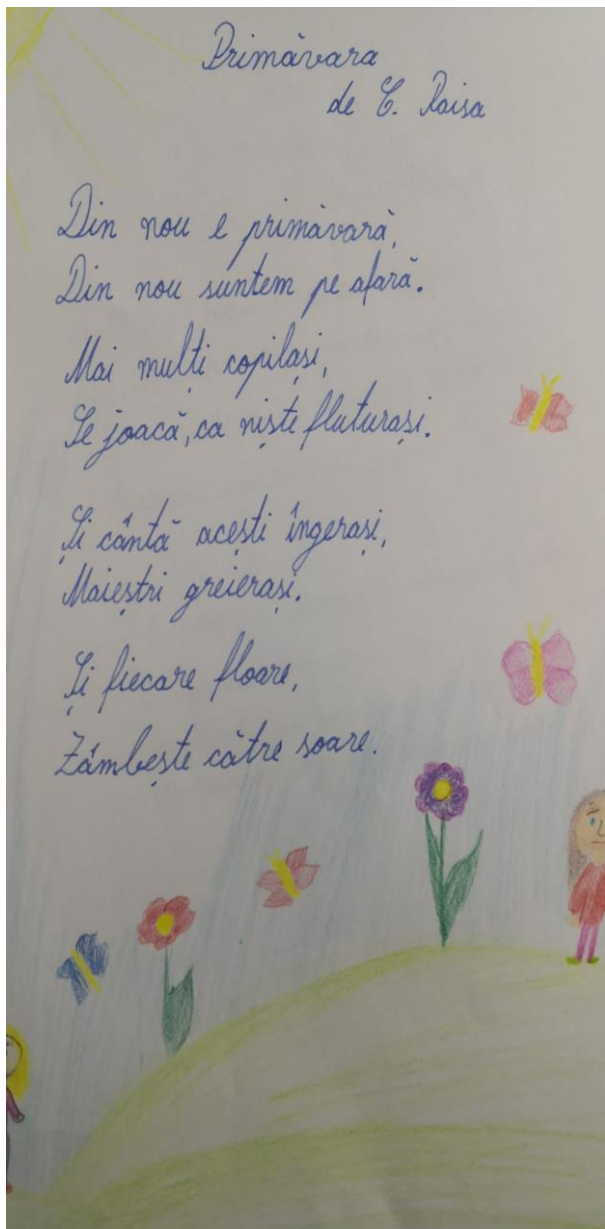 Primăvara
de C. Raisa
Din nou e primăvară,
Din nou suntem pe afară.
Mai mulți copilași,
Se joacă, ca niște fluturași.
Și cântă acești îngerași,
Maieștri greierași.
Și fiecare floare,
Zâmbește către soare.